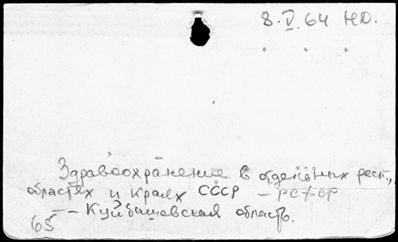 8.V.64 НО.
Здравоохранение в отдельных респ.,
областях и краях СССР – РСФСР
–– Куйбышевская область.
65